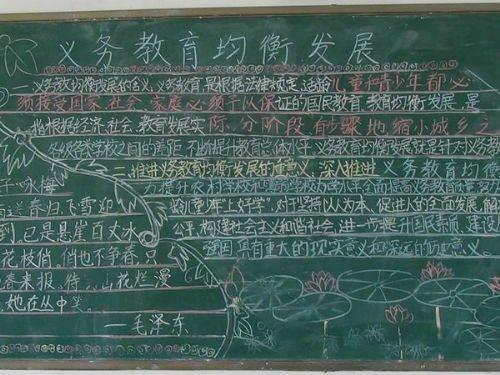 义务教育均衡发展
一、义务教育均衡发展的含义,义务教育,是根据法律规定,适龄儿童和青少年都必
须接受国家、社会、家庭必须予以保证的国民教育,教育均衡发展,是
指根据经济、社会、教育发展实际,分阶段、有步骤地缩小城乡之
各级各类学校之间的差距,不断提升教育
二、推进义务教育均衡发展的重要意义,深入推进义务教育均衡
力提升农村学校和
"上好学",对于坚持以人为本,促进人的全面发展,解
公平,构建社会主义和谐社会,进一步提升国民素质,建设
强国,具有重大的现实意义和深远的历史意义。
卜算子 咏梅
送春归,飞雪迎
到。已是悬崖百丈冰
花枝俏。俏也不争春,只
春来报。待 山花烂漫
她在丛中笑。
—毛泽东